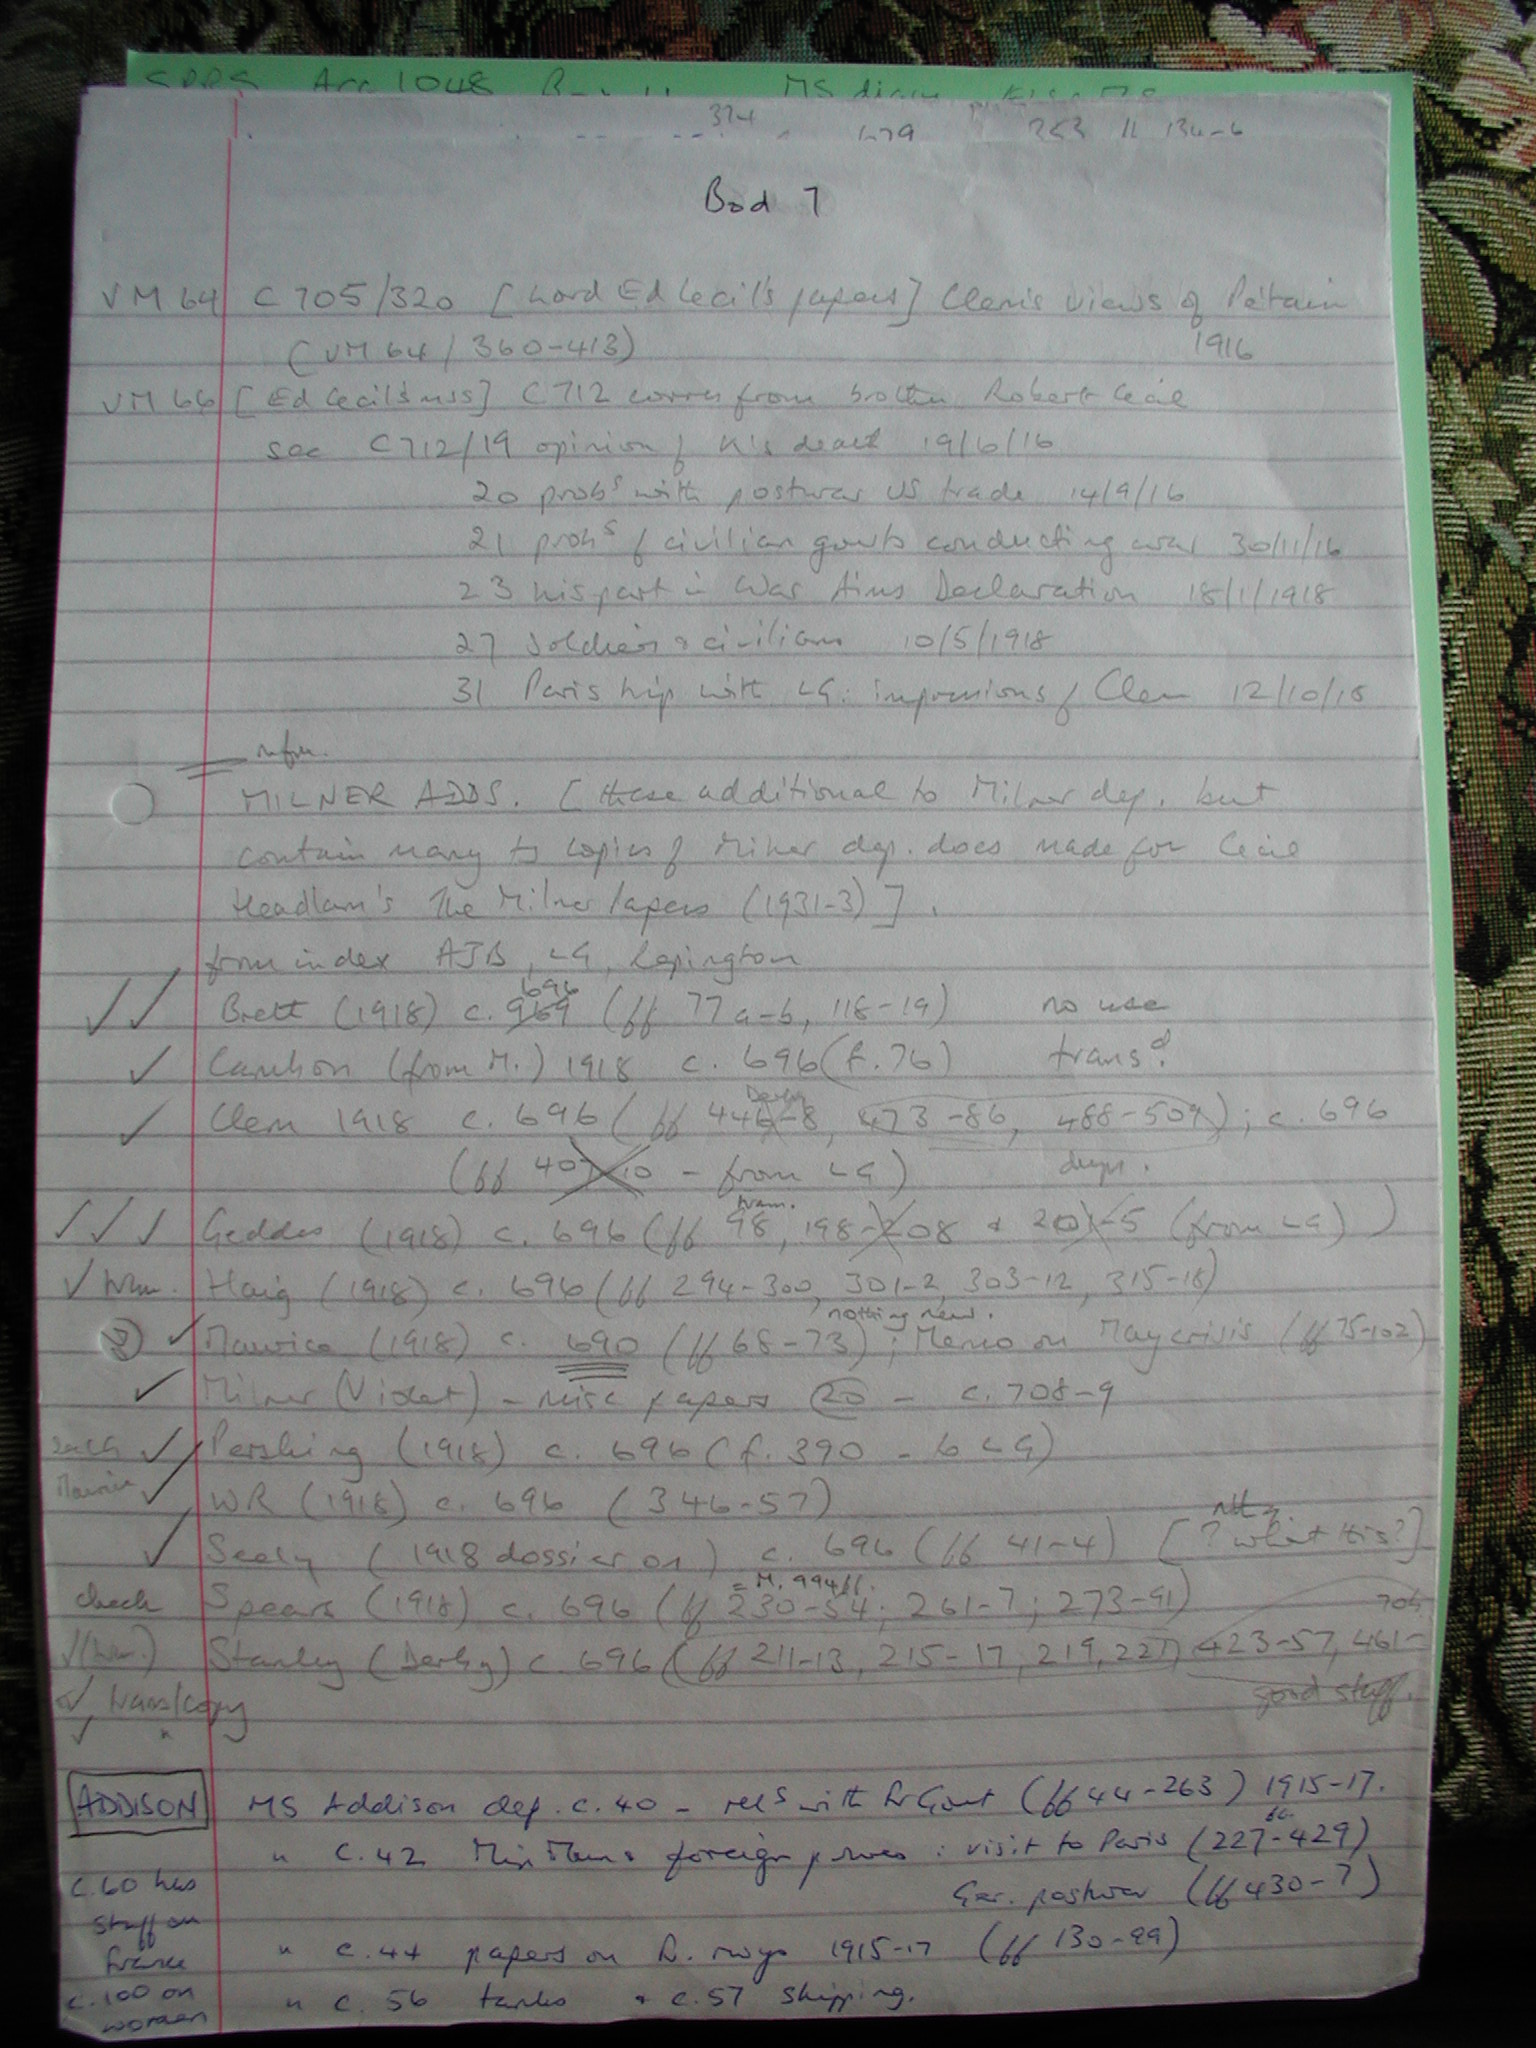 Acc 1048 MS diary
374
679 253 11 134-6
Bod 7
VM 64 C705/320 [Lord Ed Cecil's papers] Clem's views of Pétain
(VM 64/360-413) 1916
VM 66 [Ed Cecil's mss] C712 corres from brother Robert Cecil
see C712/19 opinion of K's death 19/6/16
20 probs with postwar US trade 14/9/16
21 probs of civilian govts conducting war 30/11/16
23 his part in War Aims Declaration 18/1/1918
27 Soldiers & civilians 10/5/1918
31 Paris trip with LG: impressions of Clem 12/10/18
mfm.
MILNER ADDS. [these additional to Milner dep. but
contain many ts copies of Milner dep. docs made for Cecil
Headlam's The Milner Papers (1931-3)].
from index AJB, LG, Repington
696
Brett (1918) c. 969 (ff 77a-b, 118-19) no use
Cambon (from M.) 1918 c. 696 (f. 76) transd.
Derby
Clem 1918 c. 696 (ff 446-8, 473-86, 488-509); c. 696
(ff 407-10 - from LG) dups.
tran.
Geddes (1918) c. 696 (ff 98, 198-208 & 201-5 (from LG))
Haig (1918) c. 696 (ff 294-300, 301-2, 303-12, 315-18)
nothing new.
Maurice (1918) c. 690 (ff 68-73); Memo on May crisis (ff 75-102)
Milner (Violet) - misc papers 20 - c. 708-9
Pershing (1918) c. 696 (f. 390 - to LG)
Maurice WR (1918) c. 696 (346-57)
Seely (1918 dossier on) c. 696 (ff 41-4) [? what this?]
= M. 994ff.
check Spears (1918) c. 696 (ff 230-54; 261-7; 273-91)
Stanley (Derby) c. 696 (ff 211-13, 215-17, 219, 227) 423-57, 461-
trans/copy good stuff.
"
ADDISON MS Addison dep. c. 40 - rels with Fr Govt (ff 44-263) 1915-17.
" c. 42 Min Mun & foreign powers: visit to Paris (227-429)
Ger. postwar (ff 430-7)
c. 60 has
stuff on
France
" c. 44 papers on R. 1915-17 (ff 130-99)
c. 100 on
women
" c. 56 tanks & c. 57 shipping.